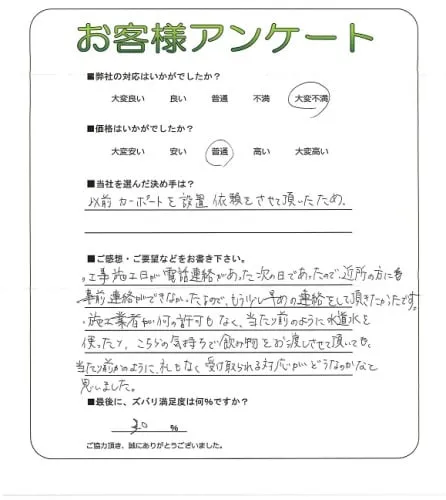 お客様アンケート
■弊社の対応はいかがでしたか？
大変良い 良い 普通 不満 大変不満
■価格はいかがでしたか？
大変安い 安い 普通 高い 大変高い
■当社を選んだ決め手は？
以前カーポートを設置依頼をさせて頂いたため.
■ご感想・ご要望などをお書き下さい。
・工事施工日が電話連絡があった次の日であったので、近所の方に
事前連絡ができなかったなので、もう少し早めの連絡をして頂きたかったです。
・施工業者が何の許可もなく、当たり前のように水道水を
使ったり、こちらの気持ちで飲み物をお渡しさせて頂いても、
当たり前かのように、礼もなく受け取られる対応がどうなのかなと
思いました。
■最後に、ズバリ満足度は何%ですか？
30 %
ご協力頂き、誠にありがとうございました。